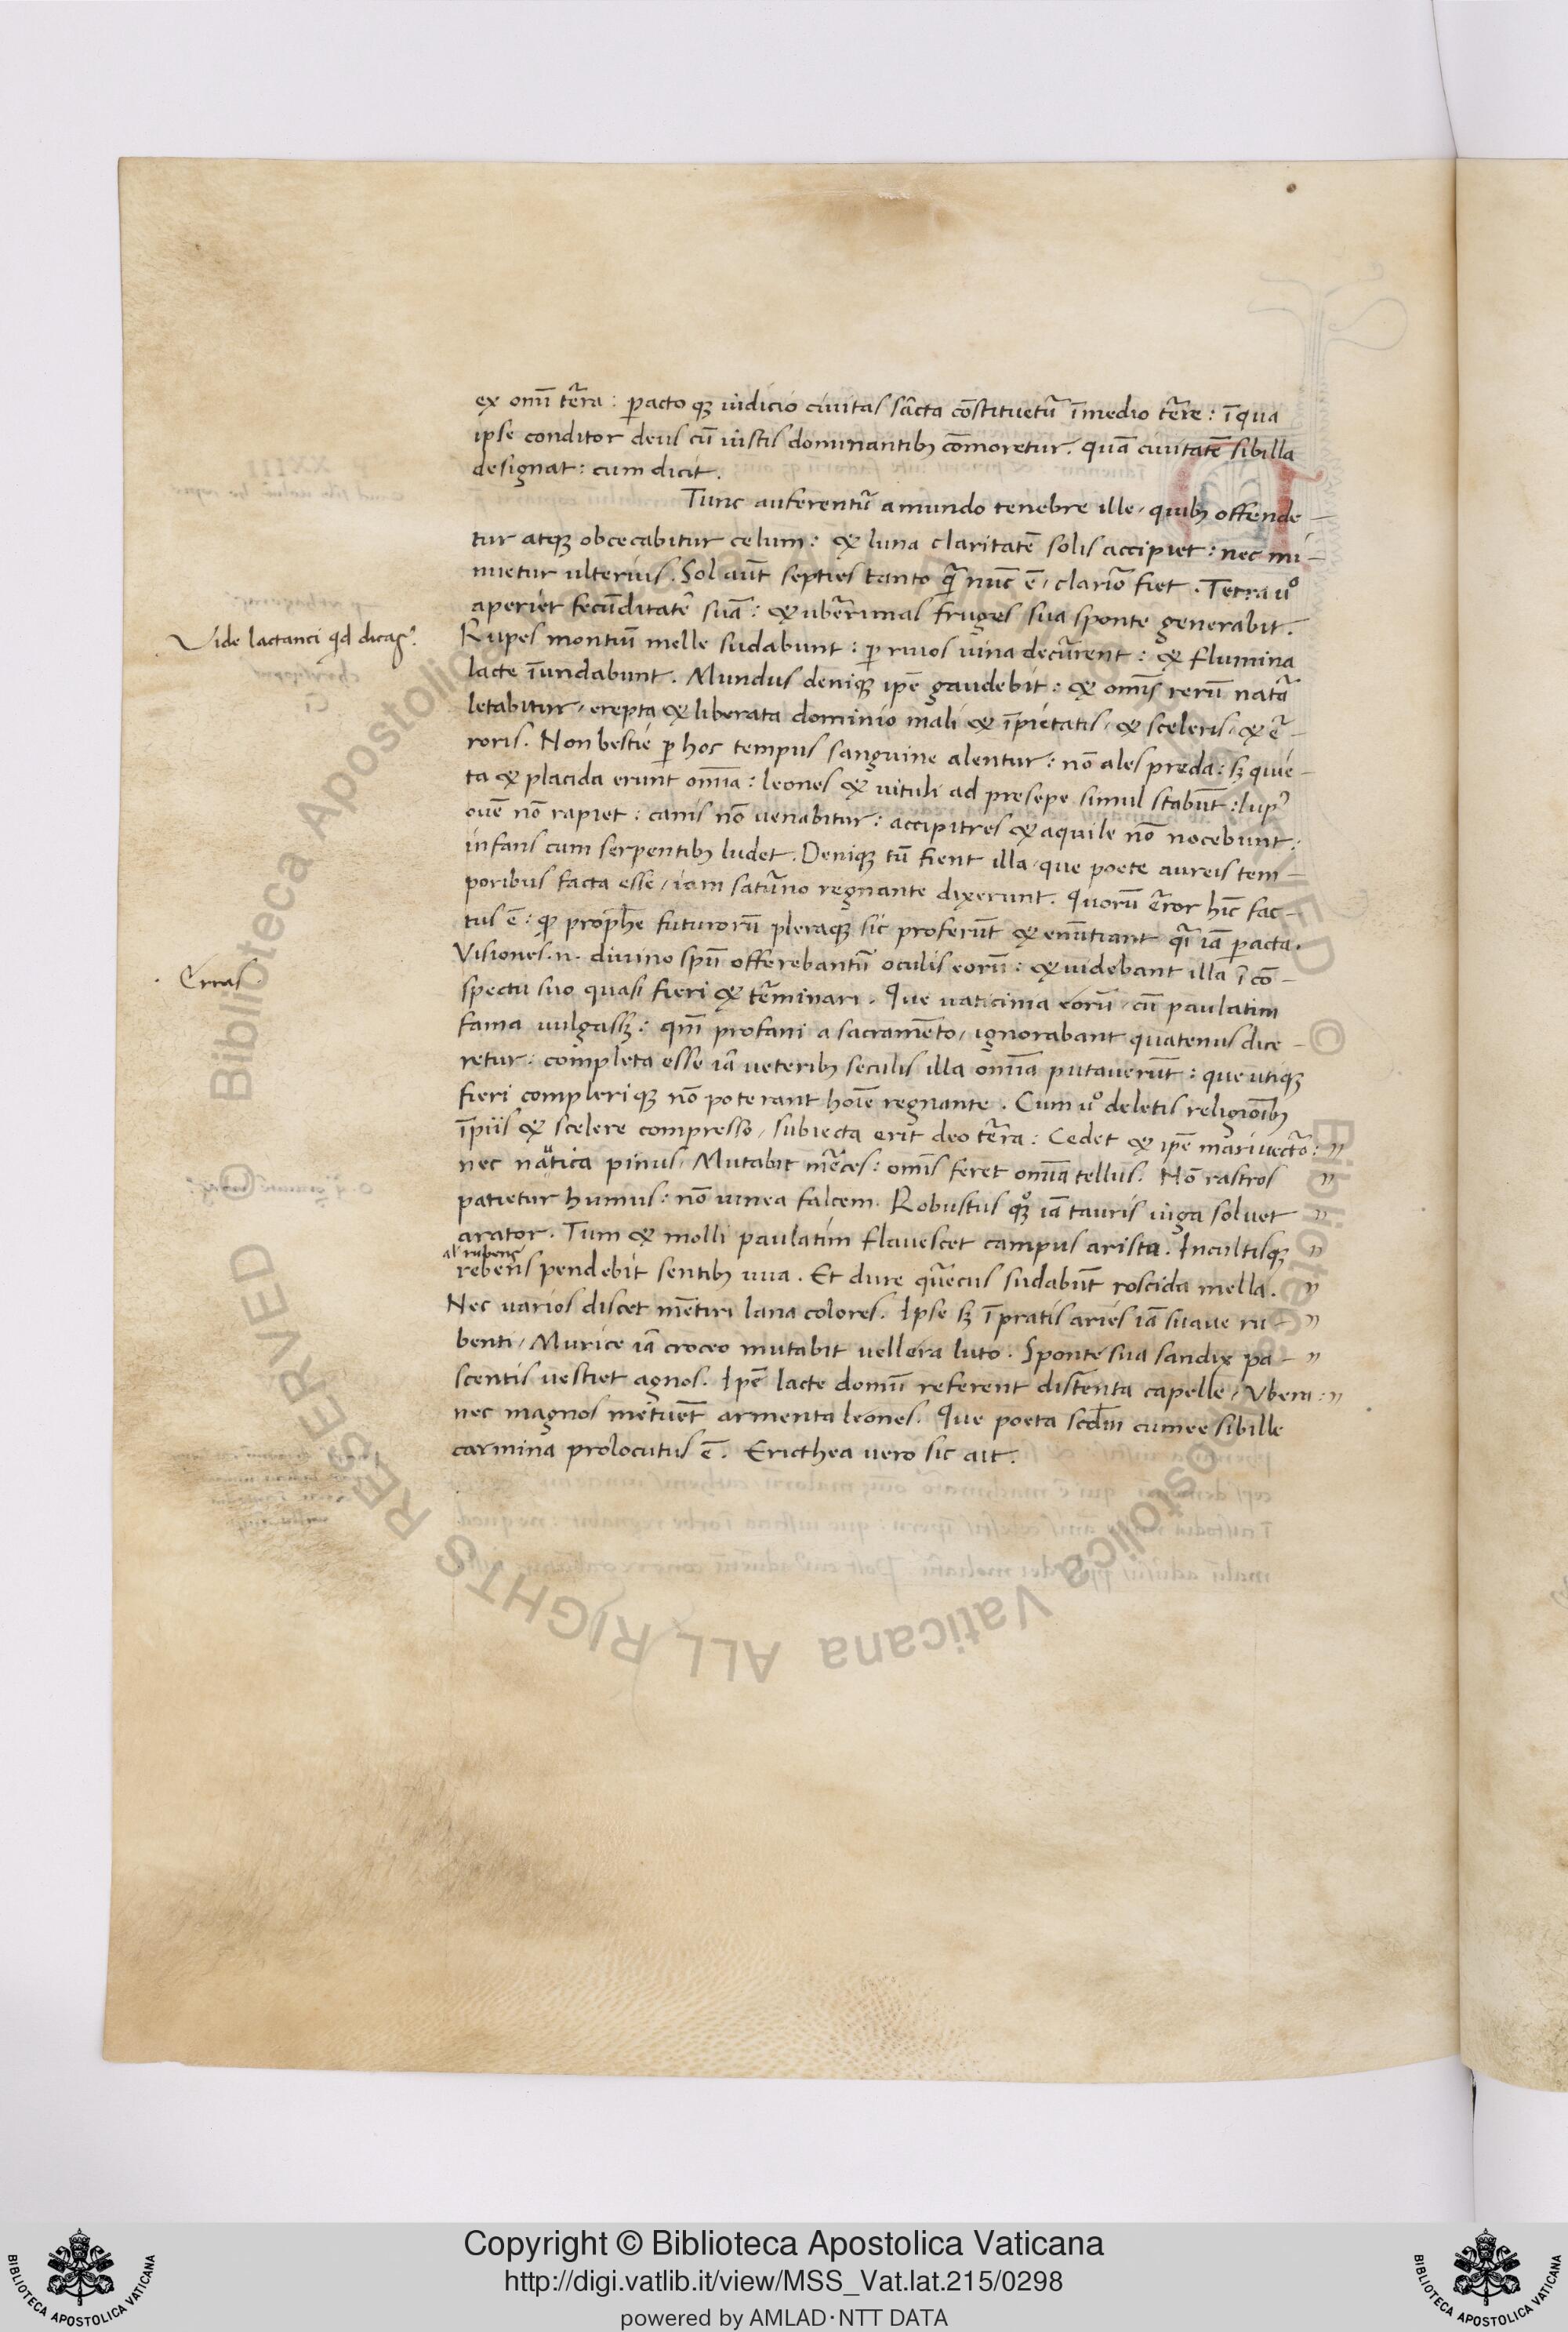 ex om̄i t̄era : ꝑacto qꝫ iudicio ciuitas sācta cōstituetur̄ ī medio t̄ere : ī qua
ipse conditor deus cū iustis dominantibꝫ cōmoretur . quā ciuitatē sibilla
designat : cum dicit .
Tunc auferentur̄ a mundo tenebre ille / quibꝫ offende –
tur atqꝫ obcecabitur celum : & luna claritatē solis accipiet : nec mi –
nuetur ulterius . Sol aūt septies tanto q̄ nūc ē / clarior̄ fiet . Terra uº
aperiet fecūditatē suā : & ub̄errimas fruges sua sponte generabit .
Vide lactanci qd dicas
Rupes montiū melle sudabunt : ꝑ riuos uina decūrrent : & flumina
lacte īundabunt . Mundus deniqꝫ ip̄e gaudebit : & om̄is rerū nat̄a
letabitur / erepta & liberata dominio mali & īpietatis / & sceleris / & er̄ –
roris . Non bestie ꝑ hoc tempus sanguine alentur : nō ales preda : sꝫ quie –
ta & placida erunt om̄ia : leones & uituli ad presepe simul stabūt : lupꝰ
ouē nō rapiet : canis nō uenabitur : accipitres & aquile nō nocebunt :
infans cum serpentibꝫ ludet . Deniqꝫ tū fient illa / que poete aureis tem –
poribus facta esse / iam satūrno regnante dixerunt . Quorū ēror hīc fac –
tus ē : qꝫ proph̄e futurorū pleraqꝫ sic proferūt & enūtiant q̄i iā ꝑacta .
Visiones .n. diuino spū offerebantū oculis eorū : & uidebant illa ī cō –
Erras .
spectu suo quasi fieri & t̄erminari . Que uaticinia eorū / cū paulatim
fama uulgassꝫ : qm̄ profani a sacramēto / ignorabant quatenus dice –
retur : completa esse iā ueteribꝫ seculis illa om̄ia putauerūt : que utiqꝫ
fieri compleriqꝫ nō poterant hoīe regnante . Cum uº deletis religioībꝫ
īpiis & scelere compresso / subiecta erit deo t̄erra : Cedet & ip̄e mari uectōr : ”
nec nautica pinus / Mutabit m̄erces : om̄is feret om̄ia tellus . Nō rastros ”
patietur humus : nō uinea falcem . Robustus qºqꝫ iā tauris iuga soluet ”
arator . Tum & molli paulatim flauescet campus arista . Incultisqꝫ ”
al rubens
rebens pendebit sentibꝫ uua . Et dure q̄uercus sudabūt roscida mella . ”
Nec uarios discet mētiri lana colores . Ipse sꝫ ī pratis aries iā suaue ru – ”
benti / Murice iā croceo mutabit uellera luto . Sponte sua sandix pa – ”
scentis uestiet agnos . Ip̄e lacte domū referent distenta capelle / Vbera : ”
nec magnos metuēt armenta leones . Que poeta scd̄m cumee sibille
carmina prolocutus ē . Ericthea uero sic ait .
Copyright © Biblioteca Apostolica Vaticana
http://digi.vatlib.it/view/MSS_Vat.lat.215/0298
powered by AMLAD·NTT DATA
BIBLIOTECA APOSTOLICA VATICANA
BIBLIOTECA APOSTOLICA VATICANA